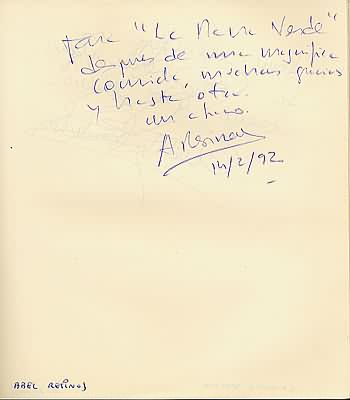 Para "La Mama Verde"
después de una magnífica
comida, muchas gracias
y hasta otra.
un abrazo.
14/2/92
ABEL RESINOS